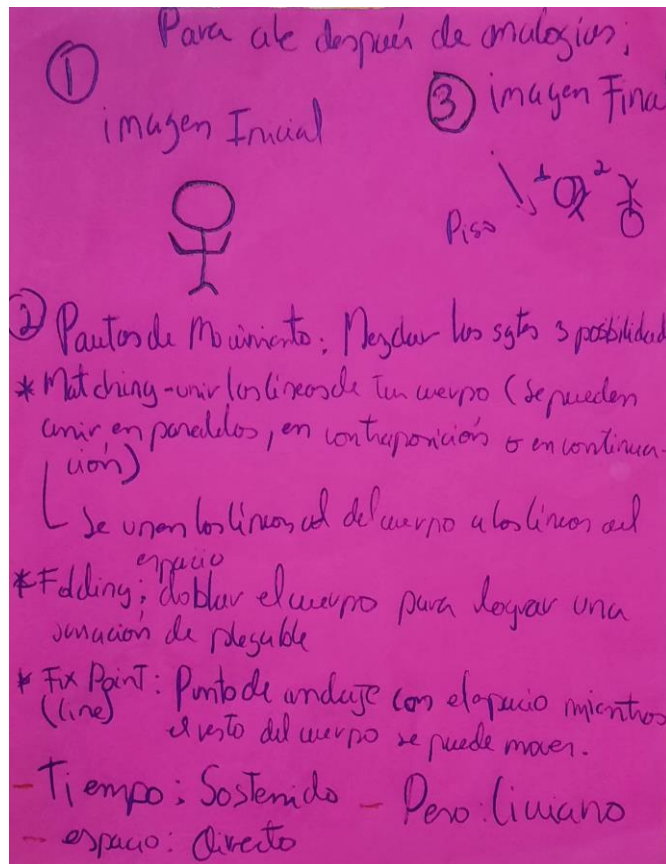 Para ale después de analogías;
①
③ imagen Final
imagen Inicial
Piso 1 2
② Pautas de Movimiento: Mezclar las sgtes 3 posibilidad
* Matching - unir las líneas de tu cuerpo (se pueden
unir en paralelos, en contraposición o en continua-
ción)
Se unen las líneas del cuerpo a las líneas del
espacio
* Folding: doblar el cuerpo para lograr una
sensación de plegable
* Fix Point: Punto de anclaje con el espacio mientras
(line) el resto del cuerpo se puede mover.
- Tiempo: Sostenido - Peso: liviano
- espacio: Directo